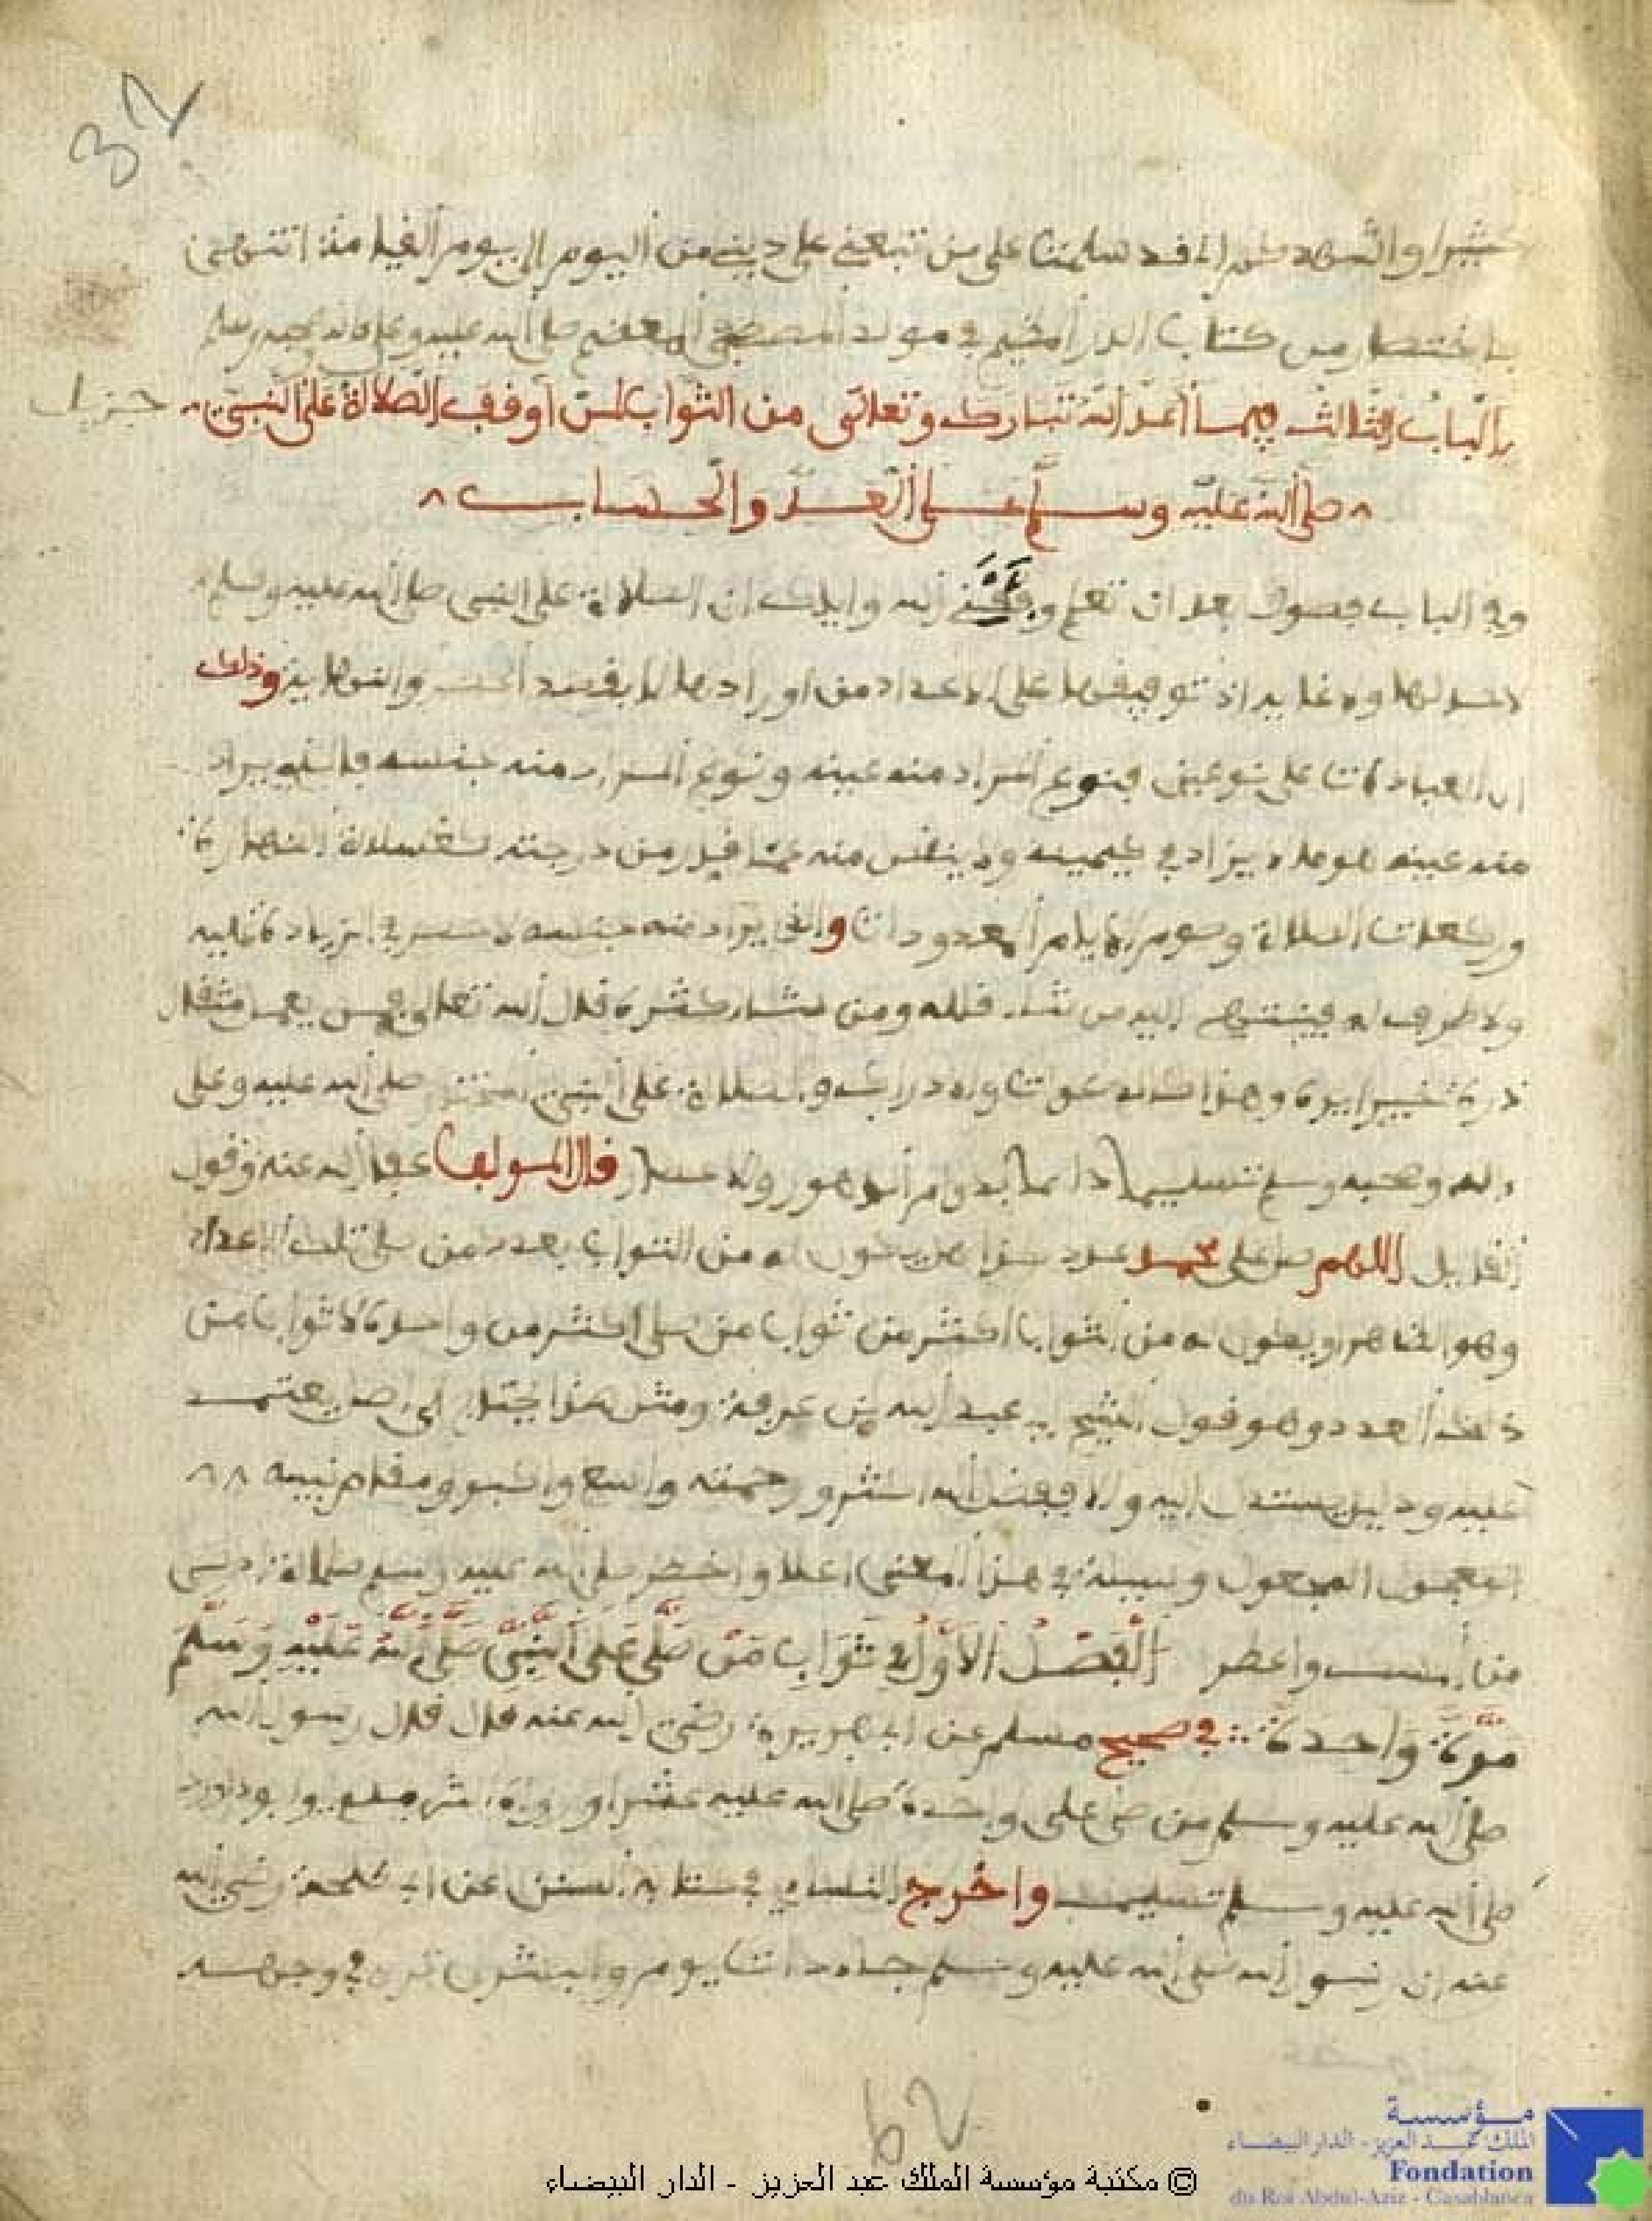 32
كثيرا واشهدكم اني قد سلمت على من تبعني على ديني من اليوم الى يوم القيامة انتهى
باختصار من كتاب الدر المنظم في مولد المصطفى المعظم صلى الله عليه وعلى اله وصحبه وسلم
الباب الثالث فيما أعد الله تبارك وتعالى من الثواب لمن أوقف الصلاة على النبي
جزيل
صلى الله عليه وسلم على العد والحساب
وفي الباب فصول بعد ان تعلم وفقني الله واياك ان الصلاة على النبي صلى الله عليه وسلم
لا حد لها ولا غاية اذ توقيفها على الاعداد من اورادها لا بقصد الحصر وانتهاية وذلك
ان العبادات على نوعين فنوع المراد منه عينه ونوع المراد منه جنسه فالذي يراد
منه عينه هو ما لا يزاد في عينه ولا ينقص منه عما قدر من درجته كغسلات الطهارة
وركعات الصلاة وصوم الايام المعدودات والذي يراد منه جنسه لا حصر في الزيادة عليه
ولا طرف له فينتهي اليه من شاء قلله ومن شاء كثره قال الله تعالى فمن يعمل مثقال
ذرة خيرا يره وهذا كالدعوات والاذكار والصلاة على النبي المختار صلى الله عليه وعلى
اله وصحبه وسلم تسليما دائما بدوام الدهور والاعصار قال المولف عفا الله عنه وقول
القائل اللهم صل على محمد عدد كذا هل يكون له من الثواب بعدد من صلى تلك الاعداد
وهو الظاهر او يكون له من الثواب اكثر من ثواب من صلى اكثر من واحدة لا ثواب من
ذلك العدد وهو قول الشيخ ابي عبد الله بن عرفة ومثل هذا يحتاج الى اصل يعتمد
عليه ودليل يستدل اليه والا ففضل الله اكثر ورحمته واسع واكبر ومقام نبيه
المعجول وسيلة في هذا المعنى اعلا واخطر صلى الله عليه وسلم صلاة ازكى
من المسك واعطر الفصل الأول في ثواب من صلى على النبي صلى الله عليه وسلم
مرة واحدة في صحيح مسلم عن ابي هريرة رضي الله عنه قال قال رسول الله
صلى الله عليه وسلم من صلى علي واحدة صلى الله عليه عشرا ورواه الترمذي وابو داوود
صلى الله عليه وسلم تسليما واخرج النسائي في كتابه السنن عن ابي طلحة رضي الله
عنه ان رسول الله صلى الله عليه وسلم جاء ذات يوم والبشرى ترى في وجهه
62
مؤسسة
الملك عبد العزيز - الدار البيضاء
Fondation
du Roi Abdul-Aziz - Casablanca
© مكتبة مؤسسة الملك عبد العزيز - الدار البيضاء